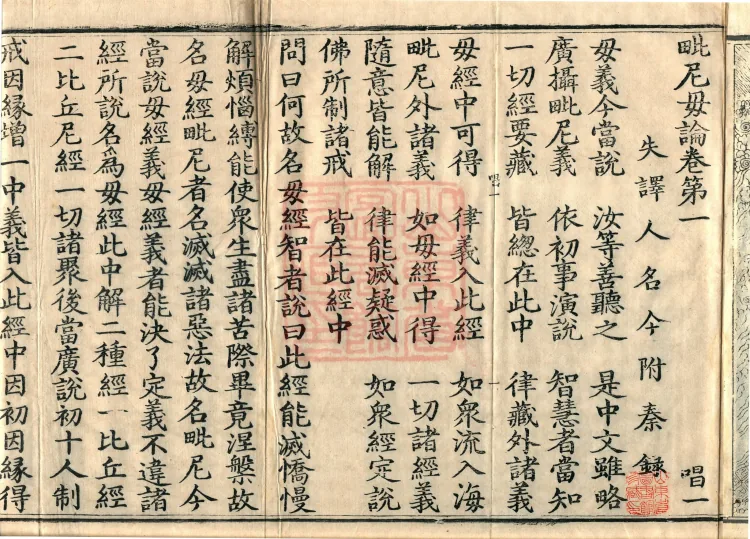 毗尼毋論卷第一 唱一
失譯人名今附秦録
毋義今當說 汝等善聽之 是中文雖略
廣攝毗尼義 依初事演說 智慧者當知
一切經要藏 皆總在此中 律藏外諸義
毋經中可得 律義入此經 如衆流入海
毗尼外諸義 如毋經中得 一切諸經義
隨意皆能解 律能滅疑惑 如衆經定說
佛所制諸戒 皆在此經中
問曰何故名毋經智者說曰此經能滅憍慢
解煩惱縛能使衆生盡諸苦際畢竟涅槃故
名毋經毗尼者名滅滅諸惡法故名毗尼今
當說毋經義毋經義者能決了定義不違諸
經所說名爲毋經此中解二種經一比丘經
二比丘尼經一切諸聚後當廣說初十人制
戒因緣增一中義皆入此經中因初因緣得
唱一
一